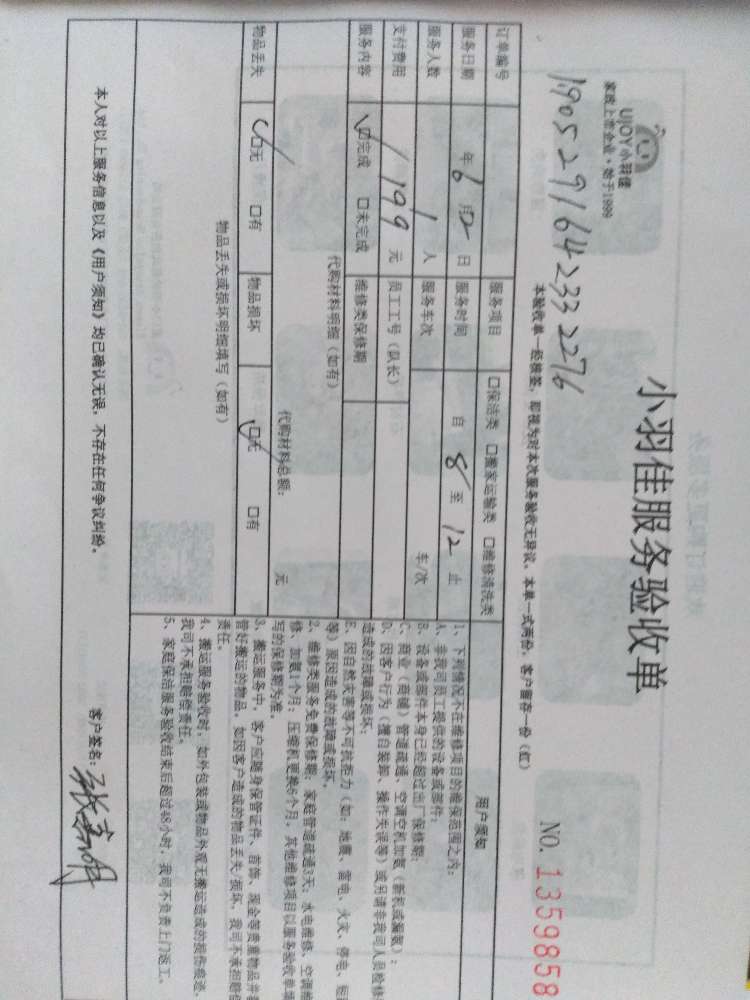 UJOY小羽佳
家政上市企业·始于1999
小羽佳服务验收单
190529164233 2276
本验收单一经签签，即视为对本次服务验收无异议。本单一式两份，客户留存一份（红）
NO. 1359858
订单编号 服务项目 □保洁类 □搬家运输类 □维修清洗类
服务日期 年6月2日 服务时间 自 8 至 12 止
服务人数 1 人 服务车次 车/次
支付费用 199 元 员工工号（队长）
服务内容 ☑完成 □未完成 维修类保修期
代购材料明细（如有）
代购材料总额： 元
物品丢失 ☑无 □有 物品损坏 ☑无 □有
物品丢失或损坏明细填写（如有）
用户须知
1、下列情况不在维修项目的维保范围之内：
A、非我司员工提供的设备或部件；
B、设备或部件本身已经超过出厂保修期；
C、商业（商铺）管道疏通、空调空机加氨（新机或漏氨）；
D、因客户行为（擅自装卸、操作失误等）或另请非我司人员检修
造成的故障或损坏；
E、因自然灾害等不可抗拒力（如：地震、雷电、火灾、停电、
等）原因造成的故障或损坏。
2、维修类服务免费保修期：家庭管道疏通3天；水电维修、空调
修、加氨1个月；压缩机更换6个月，其他维修项目以服务验收单
写的保修期为准。
3、搬运服务中，客户应随身保管证件、首饰、现金等贵重物品并
管好搬运的物品，如因客户造成的物品丢失/损坏，我司不承担
责任。
4、搬运服务验收时，如外包装或物品外观无搬运造成的损伤痕迹，
我司不承担赔偿责任。
5、家庭保洁服务验收结束后超过48小时，我司不负责上门返工。
本人对以上服务信息以及《用户须知》均已确认无误，不存在任何争议纠纷。
客户签名：